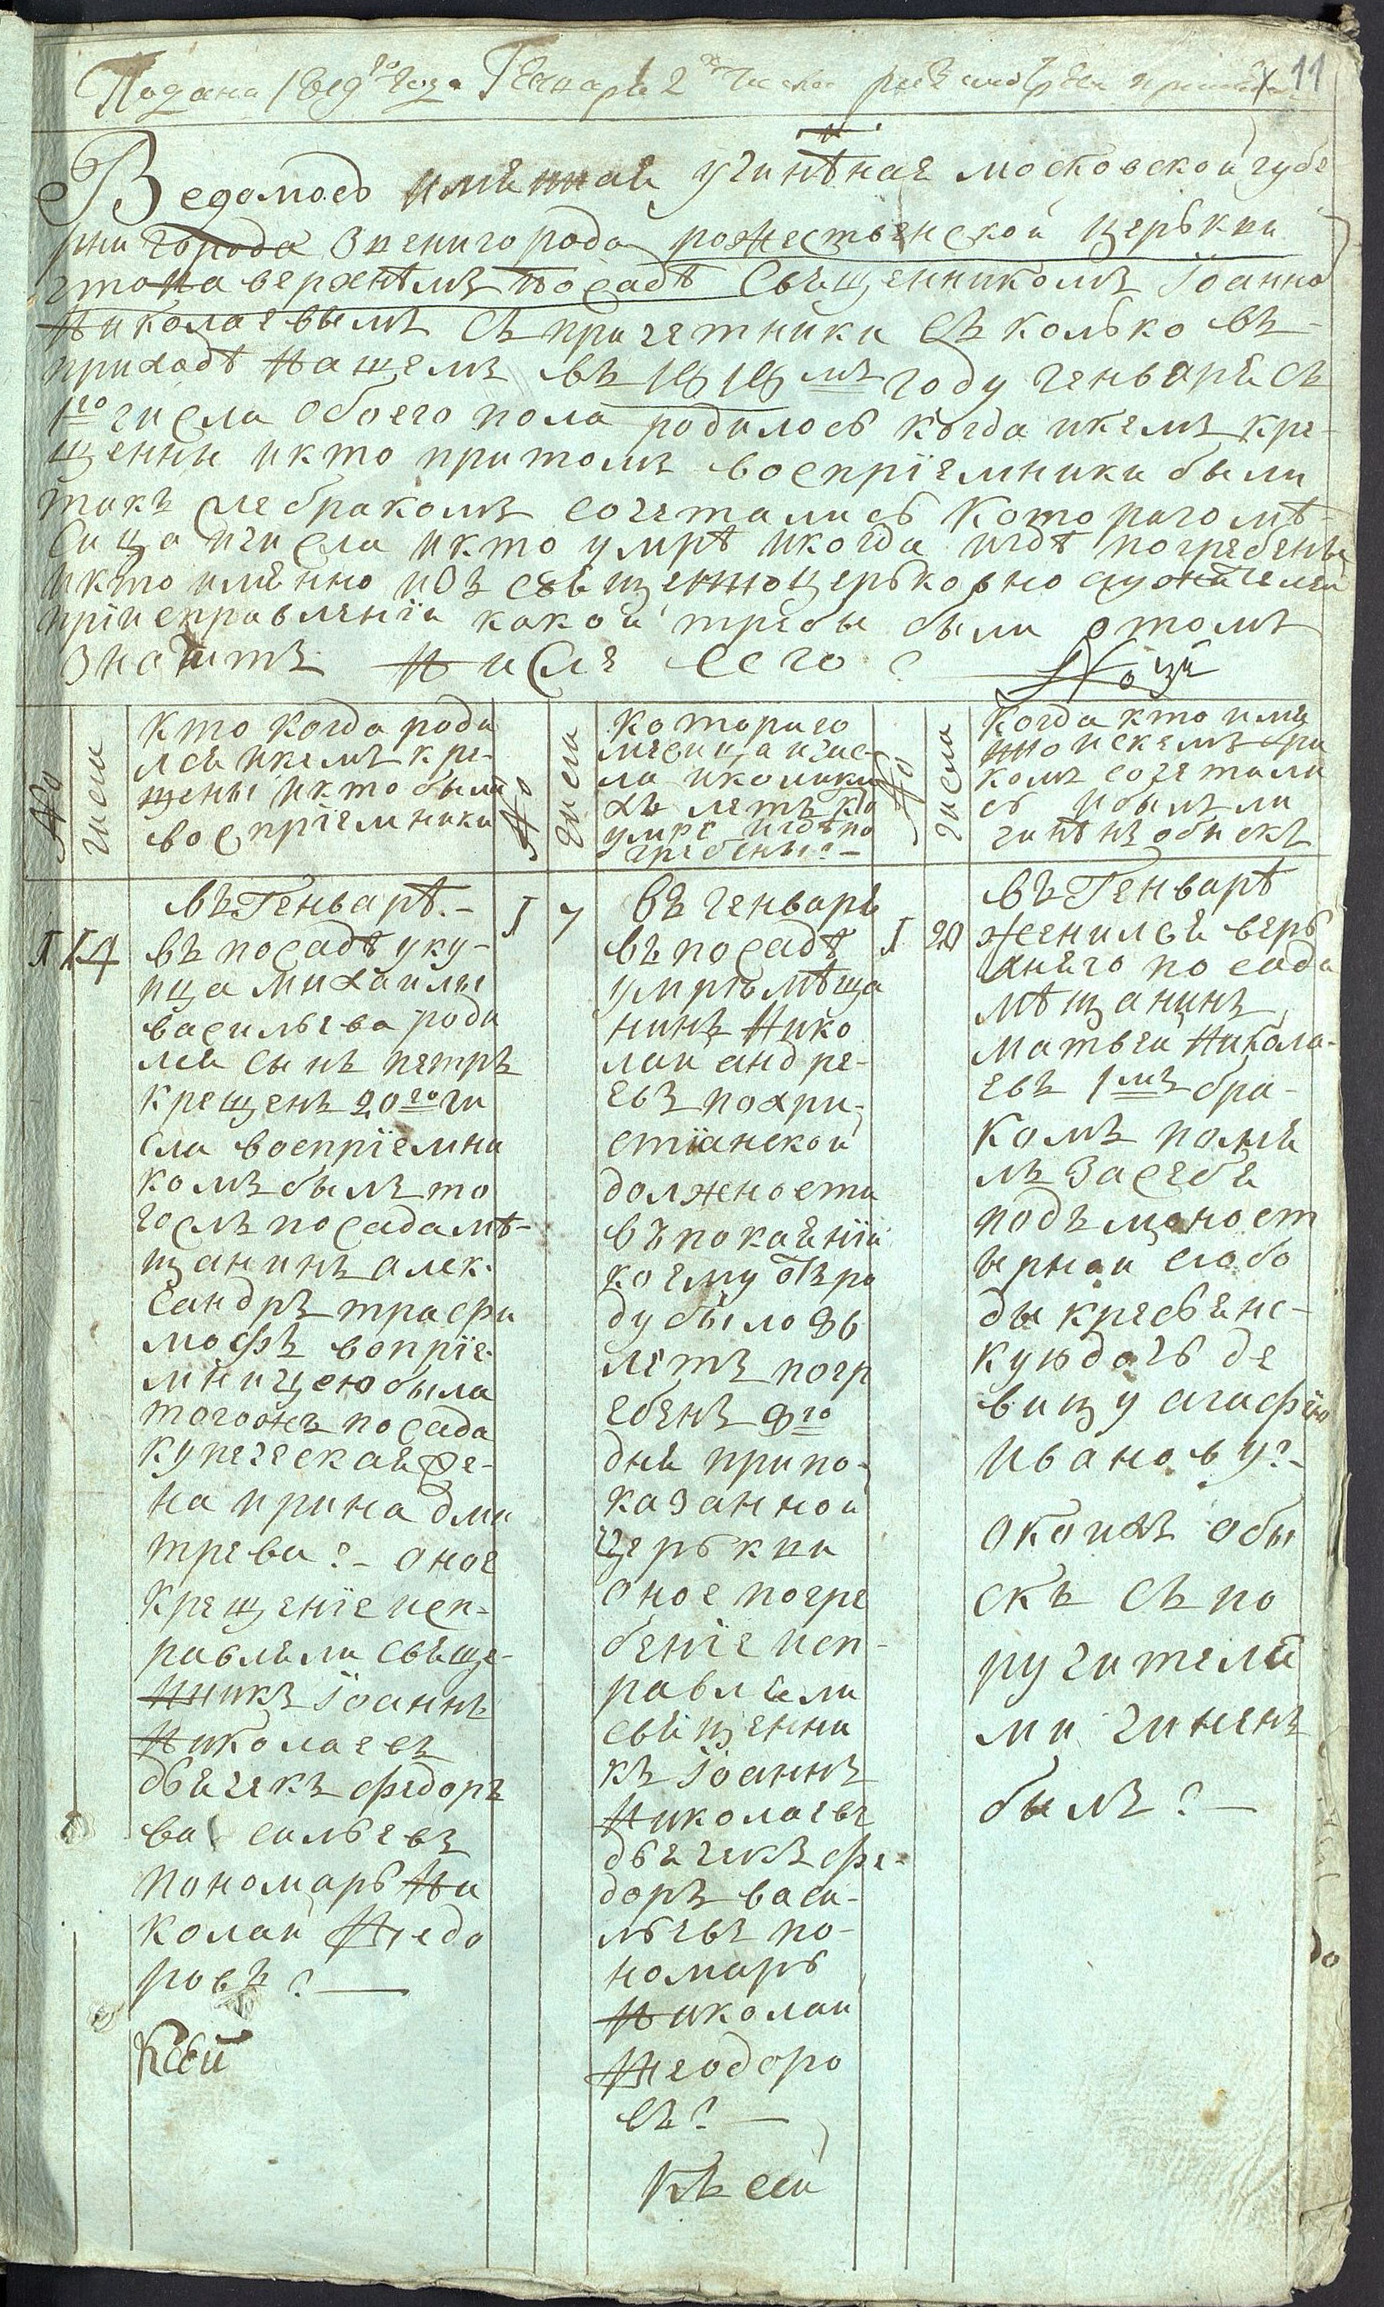 11
Подана
Ведомость имянная учинѣная московской губе
рни города Звенигорода рожественской церькви
что на верхнѣмъ посадѣ Священникомъ Iоанно
Николаевымъ съ причетники съколько въ
приходѣ нашемъ въ 1818мъ году генъваря съ
1го числа обоего пола родилось когда и кемъ кре-
щенны и кто притомъ воспрiемники были
такъ же бракомъ сочетались котораго мѣ-
сяца и числа и кто умрѣ и когда и гдѣ погребены
и кто имянно изъ священноцерьковно служителей
прiисправленiи какой требы были о томъ
значитъ Ниже сего
No
числа
кто когда роди
лся и кемъ кре-
щены и кто были
воспрiемники
No
числа
котораго
месяца и чис-
ла и колики
хъ летъ кто
умре и гдѣ по
гребены
No
числа
когда кто имя
нно и с кемъ бра
комъ сочетали
сь и былъ ли
чинѣнъ обыскъ
въ Генъварѣ
1
14
въ посадѣ у ку-
пца михаилы
васильева роди
лся сынъ петръ
крещенъ 20го чи
сла воспрiемни
комъ былъ то
гожъ посада мѣ-
щанинъ алек-
сандръ трафи
мофъ вопрiе-
мницею была
тогожъ посада
купеческая же-
на ирина дми
трева оное
крещенiе исп-
равляли свяще-
нникъ Iоаннъ
Николаевъ
дьячекъ федоръ
васильевъ
пономарь Ни
колай Федо
ровъ
1
7
въ генъваръ
въ посадѣ
умрѣ мѣща
нинъ Нико
лай андре-
евъ похри-
стiанской
должности
въ покаянiи
коему отъ ро
ду было
летъ погр
ебенъ 9го
дня при по-
казанной
церькви
оное погре
бенiе исп-
равляли
священни
къ Iоаннъ
Николаевъ
дьячекъ фе-
доръ васи-
льевъ по-
номарь
Николай
Феодоро
въ
1
20
въ Генъварѣ
женился верь
хняго посада
мѣщанинъ
матвей Никола-
евъ 1мъ бра-
комъ поня
лъ за себя
подъ монаст
ырной слобо
ды кресьянс-
кую дочь де
вицу агафiю
иванову
о коихъ обы
скъ съ по
ручителя
ми чиненъ
былъ